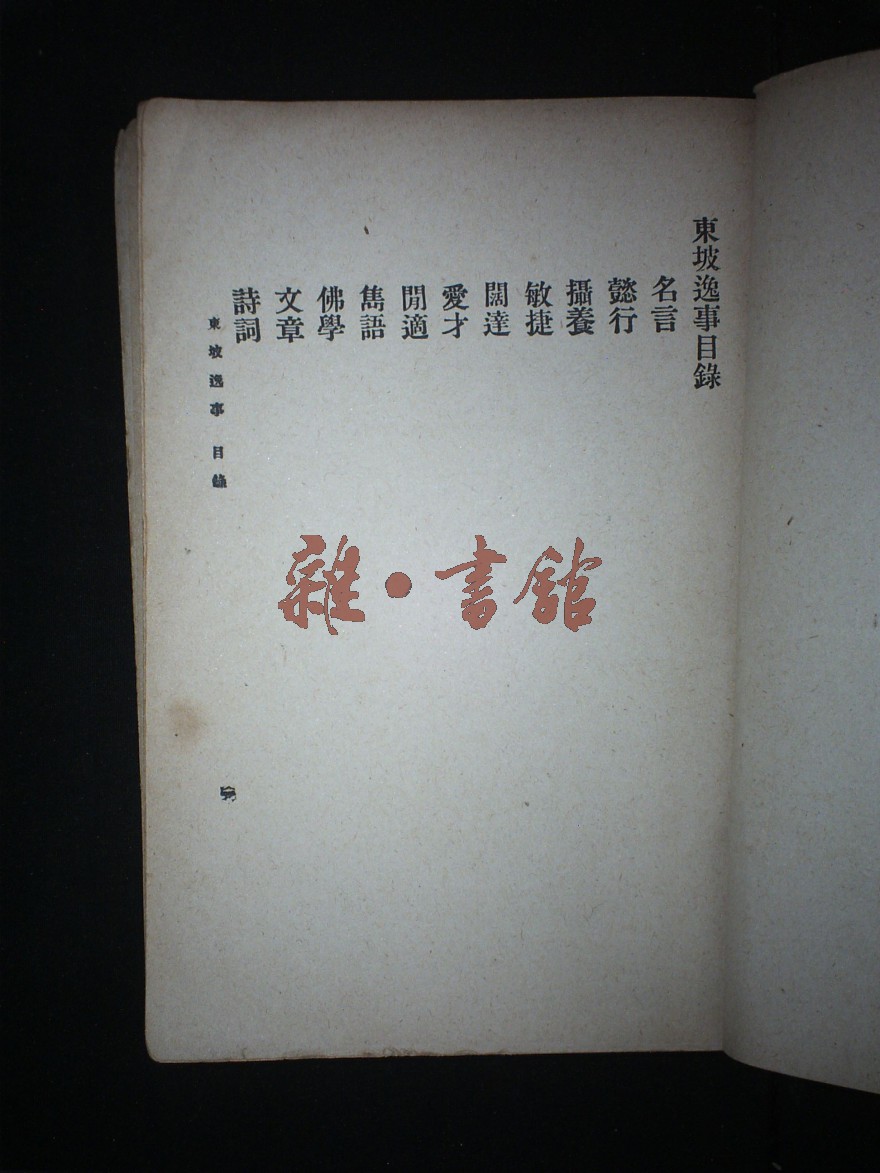 東坡逸事目錄
名言
懿行
攝養
敏捷
闊達
愛才
閒適
雋語
佛學
文章
詩詞
東坡逸事 目錄
雜·書館